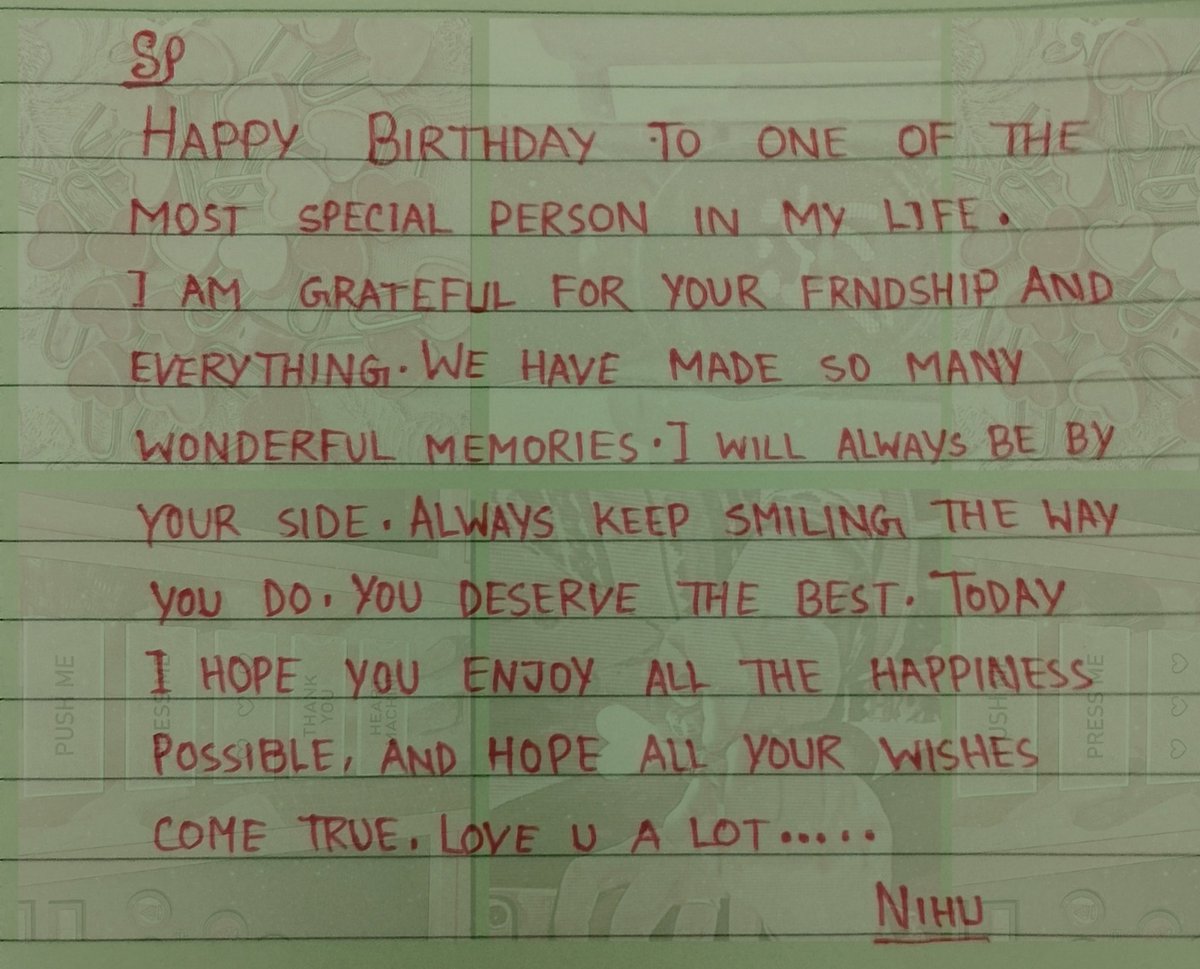 SP
HAPPY BIRTHDAY TO ONE OF THE
MOST SPECIAL PERSON IN MY LIFE.
I AM GRATEFUL FOR YOUR FRNDSHIP AND
EVERYTHING. WE HAVE MADE SO MANY
WONDERFUL MEMORIES. I WILL ALWAYS BE BY
YOUR SIDE. ALWAYS KEEP SMILING THE WAY
YOU DO. YOU DESERVE THE BEST. TODAY
I HOPE YOU ENJOY ALL THE HAPPINESS
POSSIBLE, AND HOPE ALL YOUR WISHES
COME TRUE. LOVE U A LOT.....
NIHU
PUSH ME
THANK
YOU
PUSH
PRESS ME